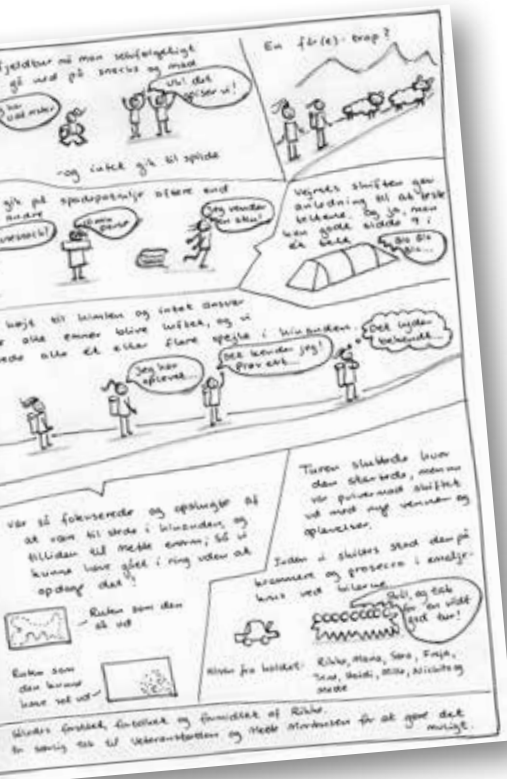 fjeldtur må man selvfølgeligt
gå ned på snacks og mad
Uh! det
spiser vi!
-og intet gik til spilde
En får(e)-trop?
gik på spadepatrulje oftere end
andre
Jeg vender
om sku!
Vejrets skiften gav
anledning til at teste
teltene, og ja, man
kan godt sidde 9 i
ét telt
Bla bla
bla...
højt til himlen og intet ansvar
alle emner blive luftet, og vi
alle ét eller flere spejle i hinanden.
Jeg har
oplevet...
Det kender jeg!
Prøv ett...
Det lyder
bekendt...
var så fokuserede og opslugte af
at være til stede i hinanden, og
tilliden til Mette enorm; Så vi
kunne have gået i ring uden at
opdage det!
Ruten som den
så ud
Ruten som
den kunne
have set ud
Turen sluttede hvor
den startede, men nu
var pulvermad skiftet
ud med nye venner og
oplevelser.
Inden vi skiltes stod den på
krammere og prosecco i emalje-
krus ved bilerne.
Skål, og tak
for en vildt
god tur!
Hilsen fra holdet:
Rikke, Maria, Sara, Freja,
Heidi, Mille, og
Mette
fortolket og formidlet af Rikke.
En særlig tak til Veteranstøtten og Mette Mortensen for at gøre det
muligt.